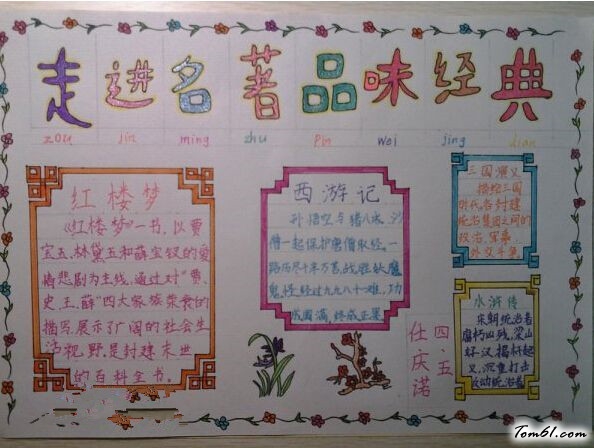 走进名著品味经典
zou jin ming zhu Pin wei jing dian
红楼梦
《红楼梦》一书，以贾
宝玉、林黛玉和薛宝钗的爱
情悲剧为主线，通过对“贾、
史、王、薛”四大家族荣衰的
描写，展示了广阔的社会生
活视野，是封建末世
的百科全书。
西游记
孙悟空与猪八戒、沙
僧一起保护唐僧取经。一
路历尽千末万苦，战胜妖魔
鬼怪，经过九九八十一难，功
成圆满，终成正果
三国演义
描绘三国
时代各封建
统治集团之间的
政治、军事、
外交斗争
水浒传
宋朝统治者
腐朽凶残，梁山
好汉揭杆起
义，沉重打击
统治者
四、五
任庆诺
Tom61.com